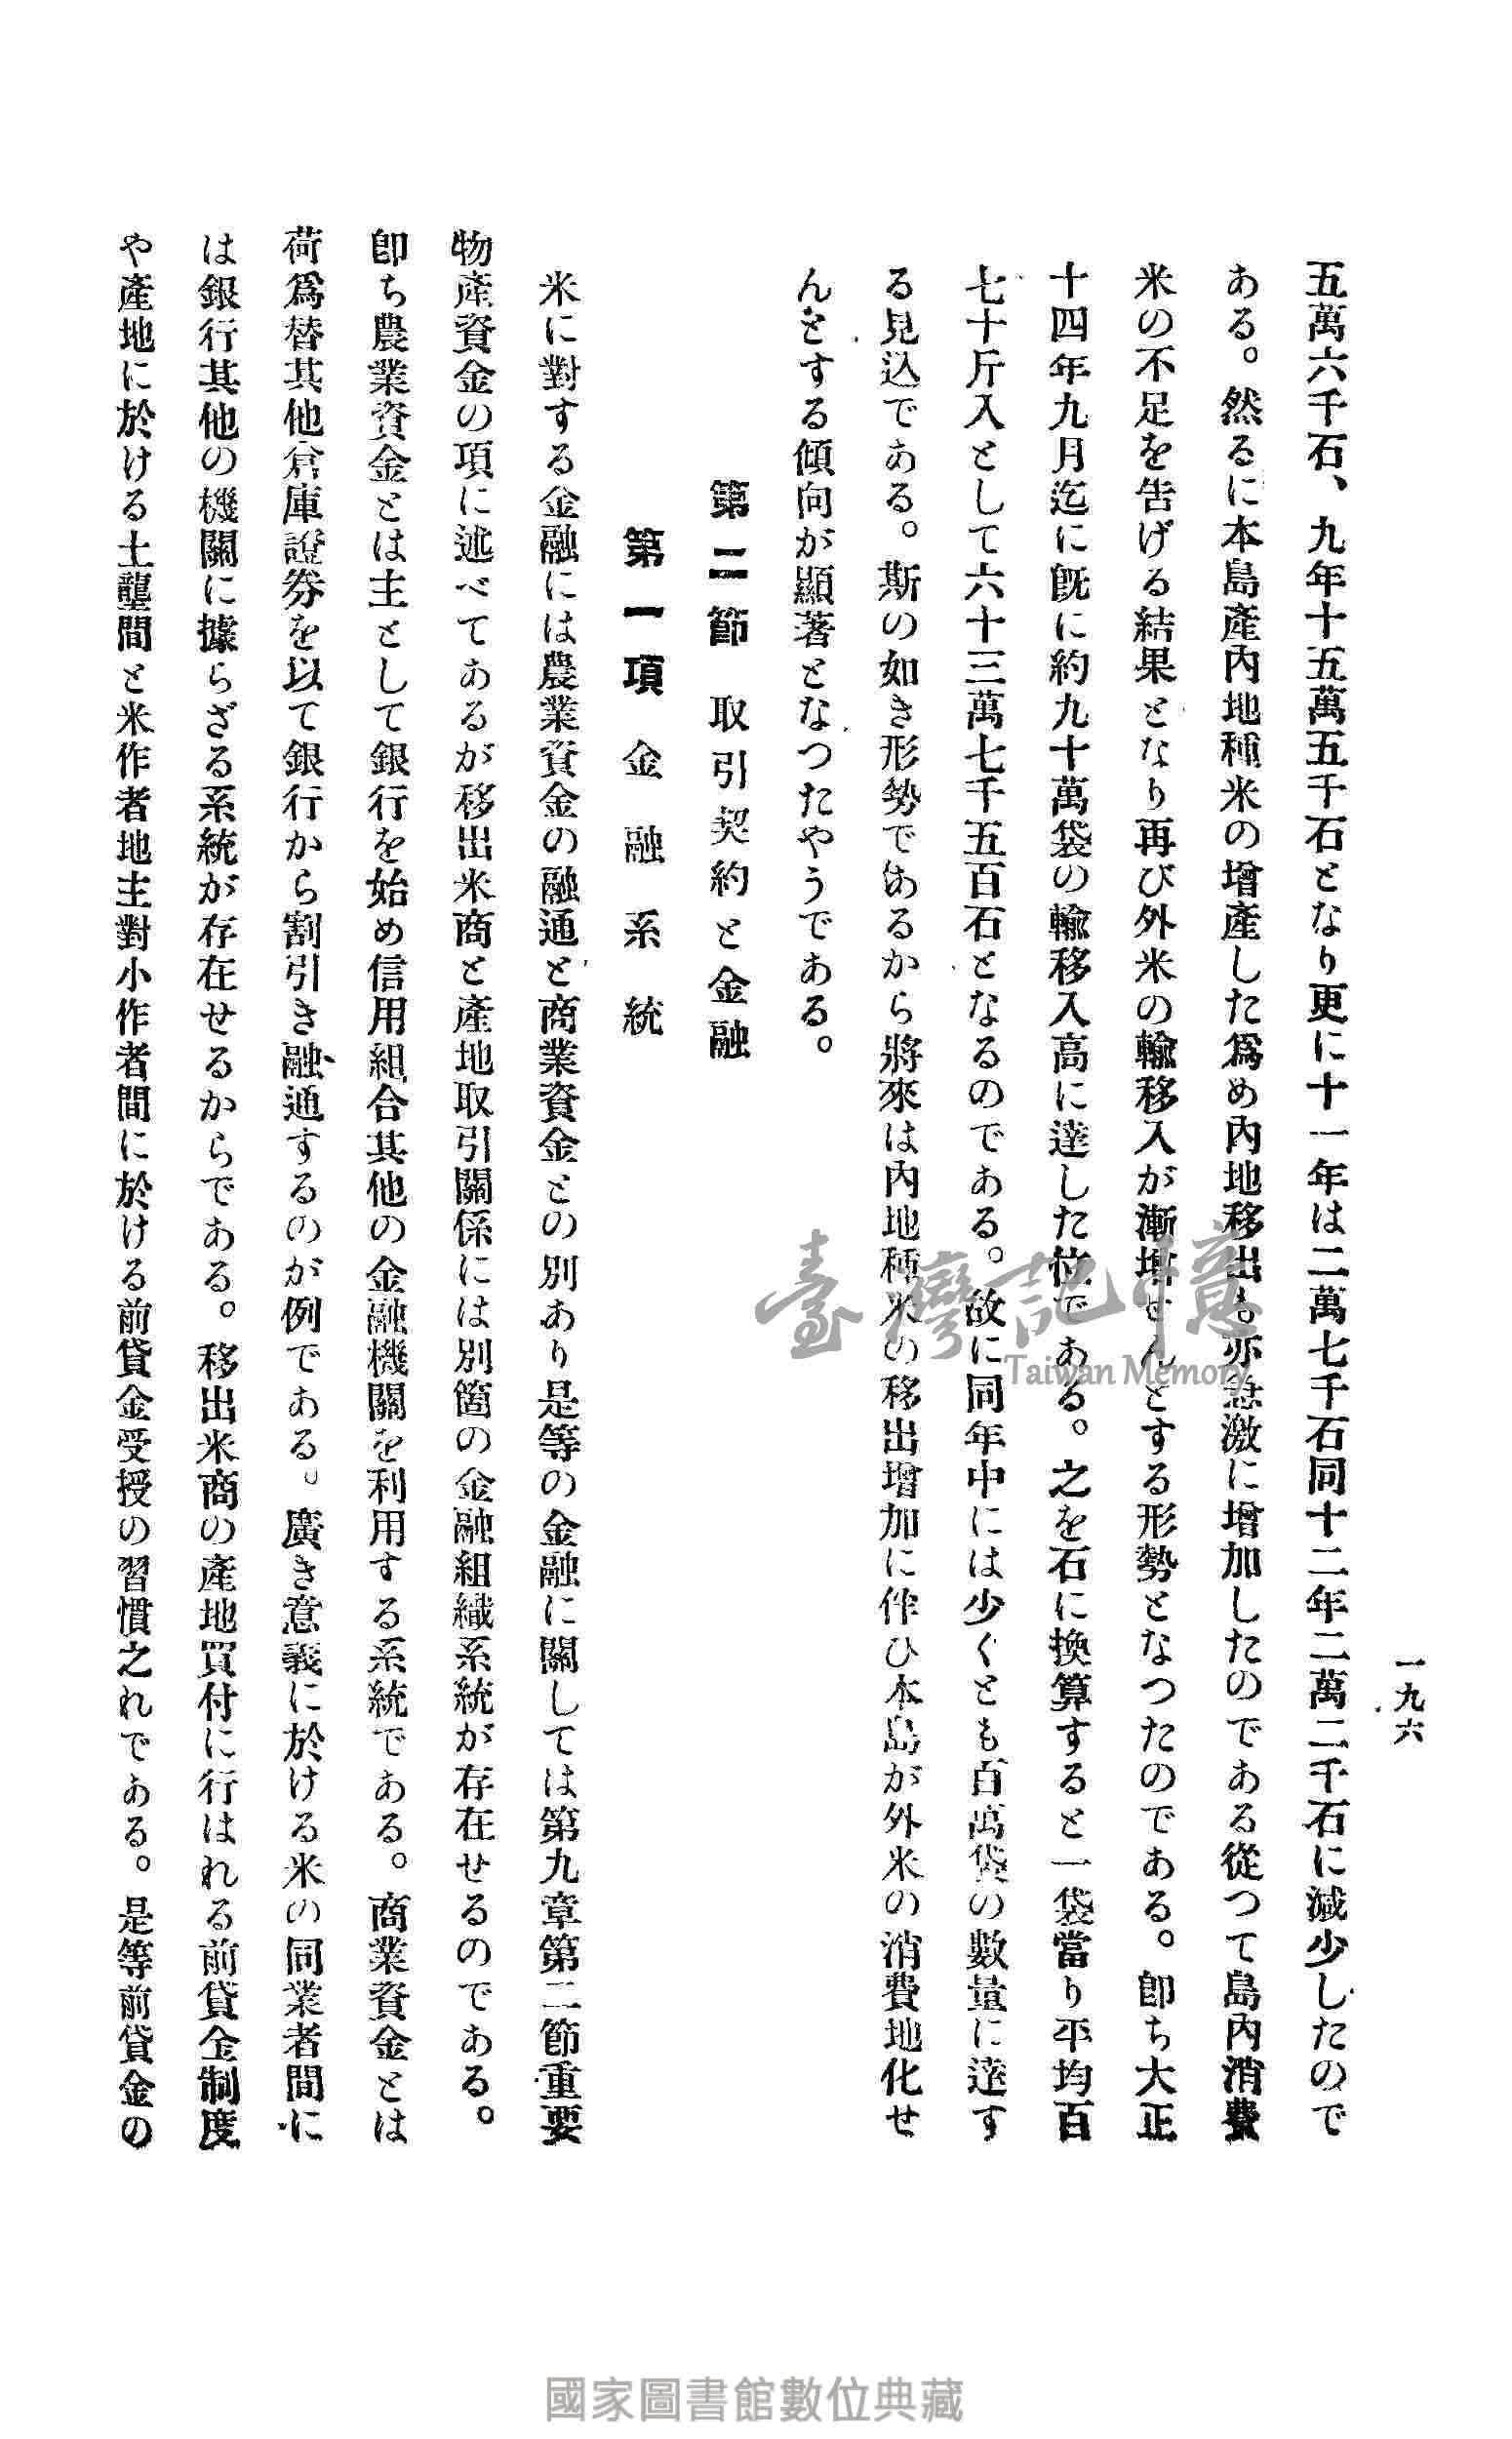 一九六
五萬六千石、九年十五萬五千石となり更に十一年は二萬七千石同十二年二萬二千石に減少したので
ある。然るに本島產內地種米の增產した爲め內地移出も亦急激に增加したのである從つて島內消費
米の不足を吿げる結果となり再び外米の輸移入が漸增せんとする形勢となつたのである。卽ち大正
十四年九月迄に旣に約九十萬袋の輸移入高に達した位である。之を石に換算すると一袋當り平均百
七十斤入として六十三萬七千五百石となるのである。故に同年中には少くとも百萬袋の數量に達す
る見込である。斯の如き形勢であるから將來は內地種米の移出增加に伴ひ本島が外米の消費地化せ
んとする傾向が顯著となつたやうである。
第二節 取引契約と金融
第一項 金融系統
米に對する金融には農業資金の融通と商業資金との別あり是等の金融に關しては第九章第二節重要
物產資金の項に述べてあるが移出米商と產地取引關係には別箇の金融組織系統が存在せるのである。
卽ち農業資金とは主として銀行を始め信用組合其他の金融機關を利用する系統である。商業資金とは
荷爲替其他倉庫證券を以て銀行から割引き融通するのが例である。廣き意義に於ける米の同業者間に
は銀行其他の機關に據らざる系統が存在せるからである。移出米商の產地買付に行はれる前貸金制度
や產地に於ける土壟間と米作者地主對小作者間に於ける前貸金受授の習慣之れである。是等前貸金の
臺灣記憶
Taiwan Memory
國家圖書館數位典藏